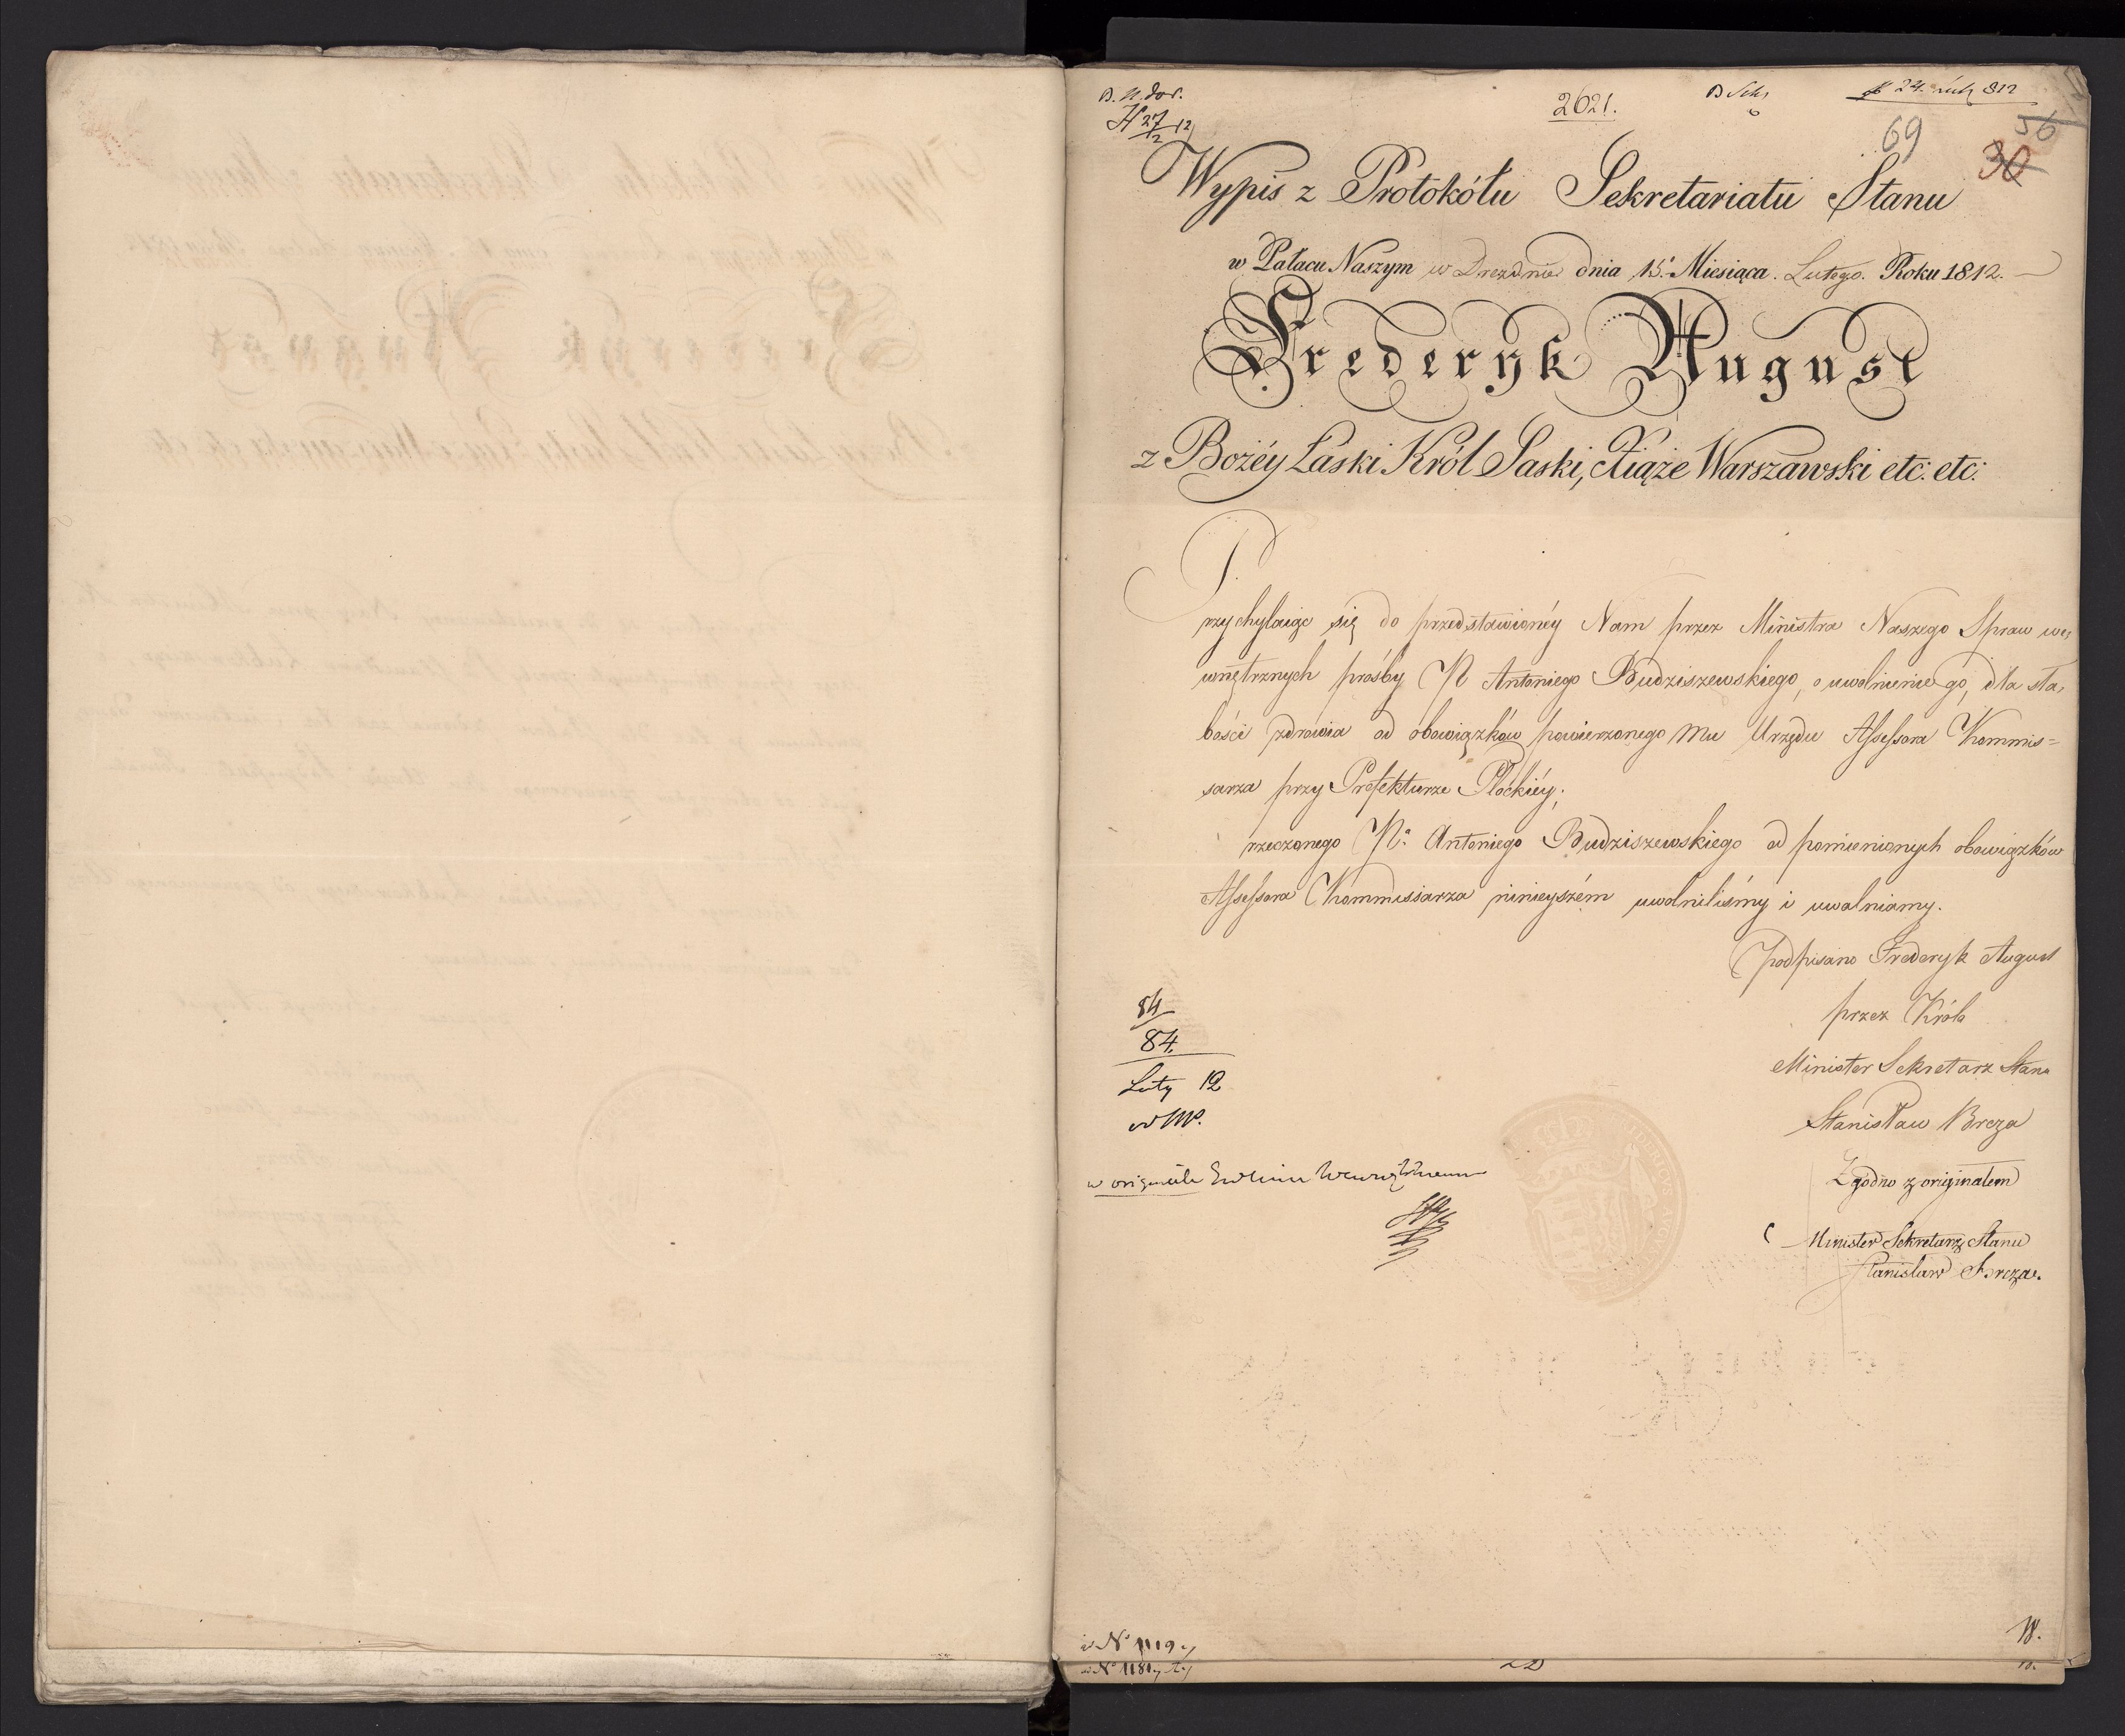 2621.
69
56
30
Wypis z Protokółu Sekretariatu Stanu
w Pałacu Naszym w Dreznie dnia 15. Miesiąca. Lutego. Roku 1812.
Frederyk August
z Bożéy Łaski Król Saski, Xiąże Warszawski etc: etc:
Przychylaiąc się do przedstawionéy Nam przez Ministra Naszego Spraw we,
wnętrznych prośby Ur Antoniego Budziszewskiego, o uwolnienie go, dla sła,
bości zdrowia od obowiązków powierzonego Mu Urzędu Assessora Kommis=
sarza przy Prefekturze Płockiéy;
rzeczonego Ur: Antoniego Budziszewskiego od pomienionych obowiązków
Assessora Kommissarza ninieyszém uwolniliśmy i uwalniamy.
Podpisano Frederyk August
przez Króla
Minister Sekretarz Stanu
Stanisław Breza
84
84.
Luty 12
w originale
Zgodno z originałem
Minister Sekretarz Stanu
Stanisław Breza.
w No 1119
w No 1181